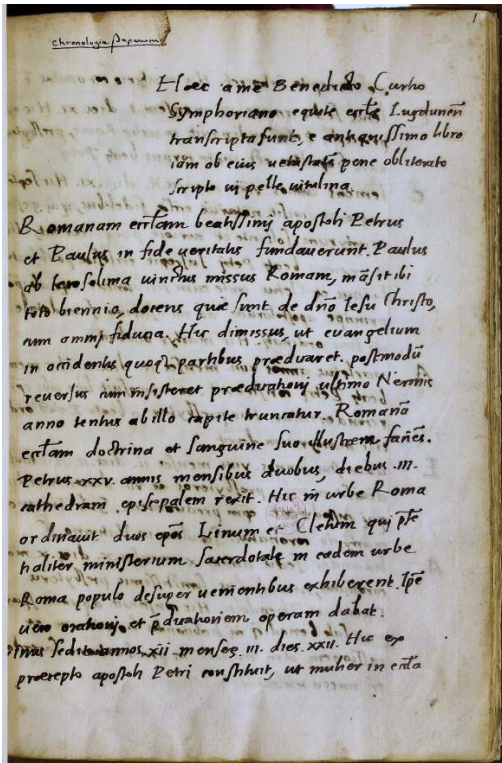 1
Chronologia Paparum
Haec a me Benedicto Curtio
Symphoriano equite eccłae Lugdunen̄
transcripta sunt, e antiquissimo libro
iam ob eius uetustatē pene obliterato
scripto in pelle uitulina.
Romanam eccłam beatissimi apostoli Petrus
et Paulus in fide ueritatis fundauerunt. Paulus
ab Ierosolima uinctus missus Romam, māsit ibi
toto biennio, docens quae sunt de dn̄o Iesu Christo,
cum omni fiducia. Hic dimissus, ut euangelium
in occidentis quoq; partibus praedicaret. postmodū
reuersus cum insisteret praedicationi ultimo Neronis
anno tentus ab illo capite truncatur. Romanā
eccłam doctrina et sanguine suo illustrem
Petrus .xxv. annis mensibus duobus, diebus .III.
cathedram episcopalem rexit. Hic in urbe Roma
ordinauit duos ep̄os Linum et Cletum qui p̄tē
haliter ministerium sacerdotale in eadem urbe
Roma populo desuper uenientibus exhiberent. Ip̄e
uero orationi et p̄dicationiem operam dabat.
Linus sedit annos .xii menses .III. dies .XXII. Hic ex
praecepto apostoli Petri constituit, ut mulier in eccła